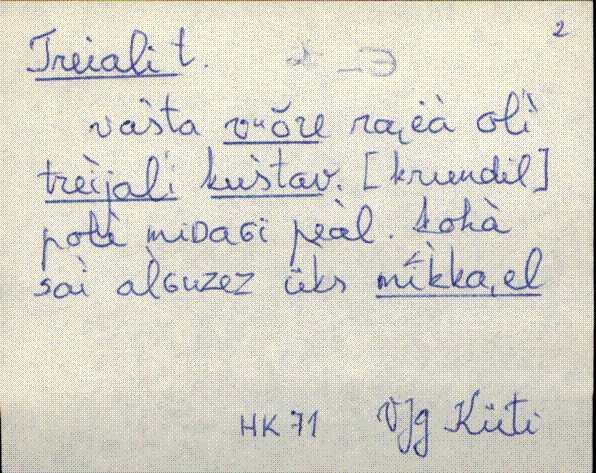 2
Treiali t.
vàsta vᵘõre raɛà olì
trèijalì kùstav. [krundil]
polè miDaGi peàl. kohà
saì àlGuzez üks mìkkaɛl
HK 71 VJg Küti